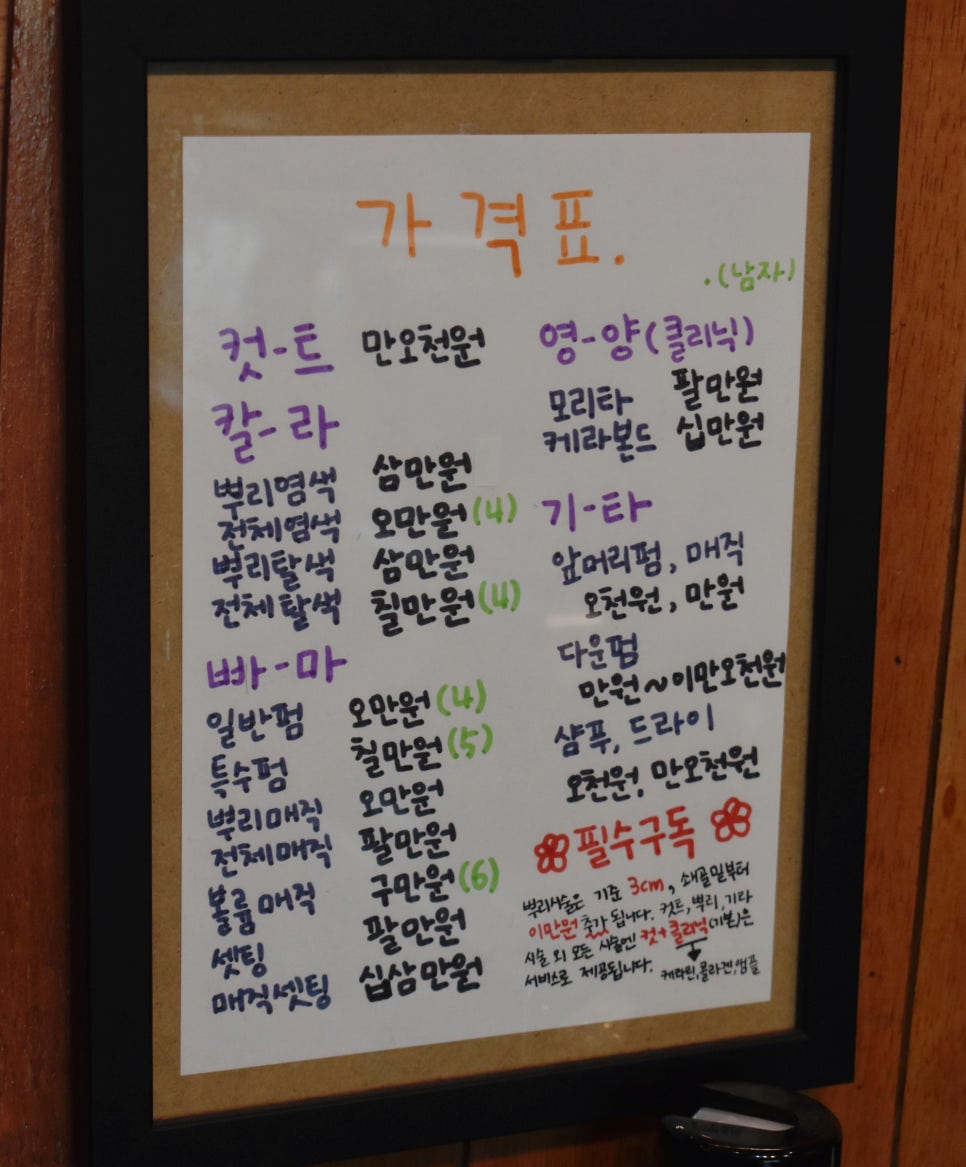 가격표.
.(남자)
컷-트 만오천원
칼-라
뿌리염색 삼만원
전체염색 오만원(4)
뿌리탈색 삼만원
전체탈색 칠만원(4)
빠-마
일반펌 오만원(4)
특수펌 칠만원(5)
뿌리매직 오만원
전체매직 팔만원
볼륨매직 구만원(6)
셋팅 팔만원
매직셋팅 십삼만원
영-양(클리닉)
모리타 팔만원
케라본드 십만원
기-타
앞머리펌, 매직
오천원, 만원
다운펌
만원~이만오천원
샴푸, 드라이
오천원, 만오천원
필수구독
뿌리시술은 기준 3cm, 쇄골밑부터
이만원 추가 됩니다. 컷트, 뿌리, 기타
시술 외 모든 시술엔 컷+클리닉(기본)은
서비스로 제공됩니다.
케라틴,콜라겐,앰플